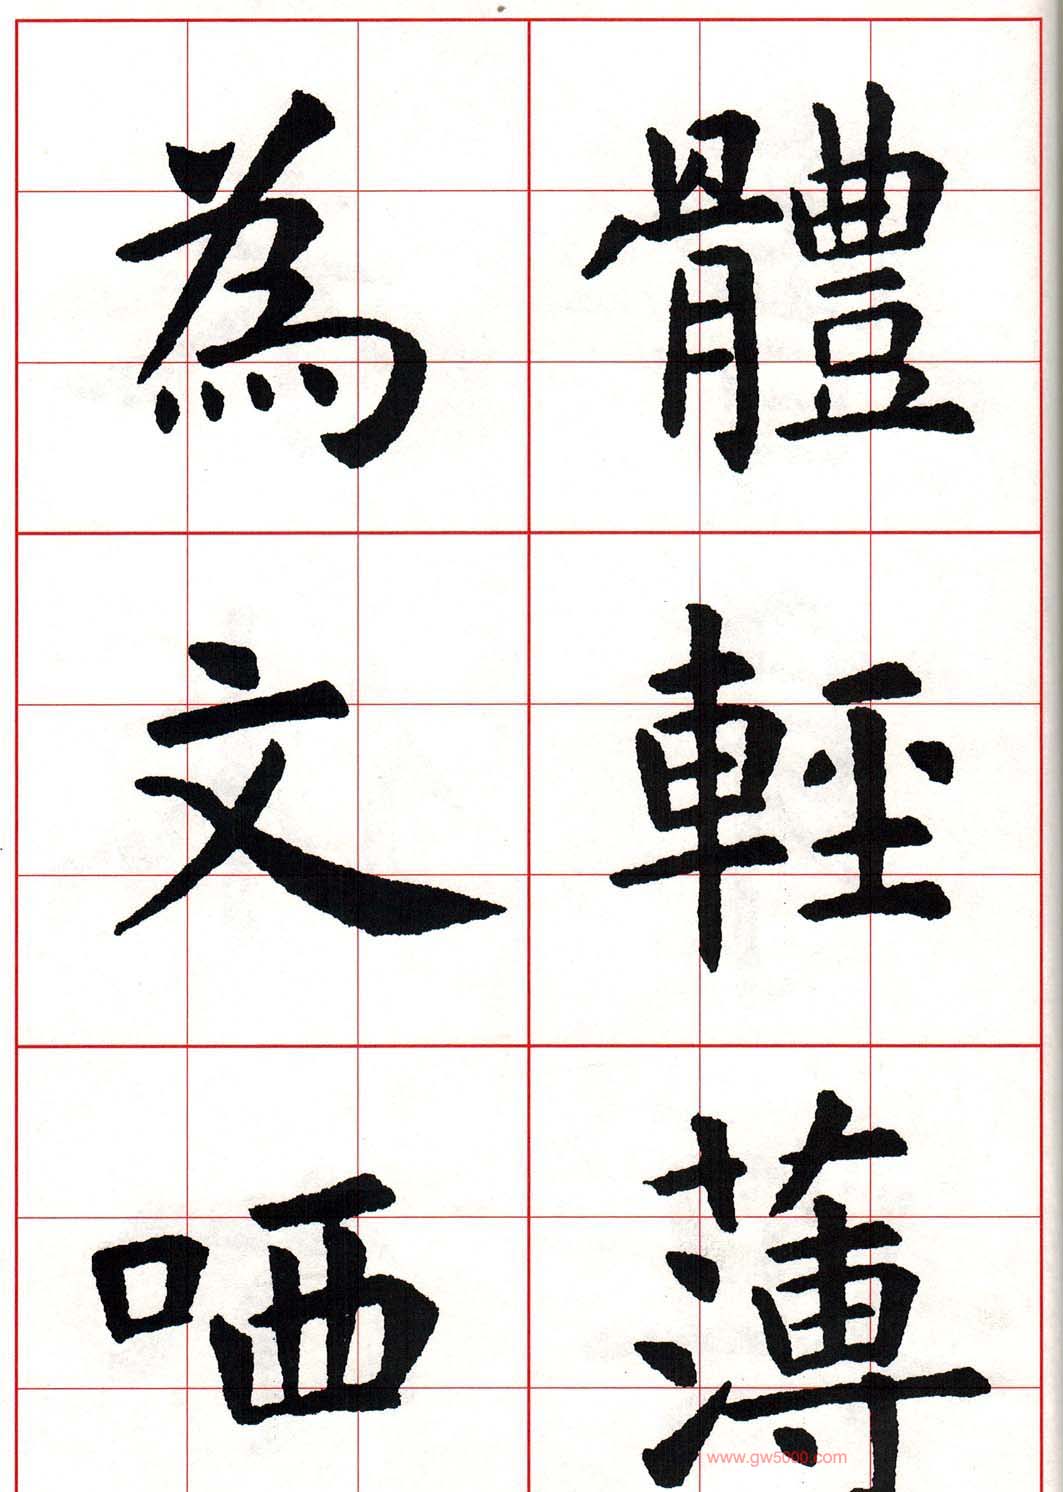 體輕薄
為文哂
www.gw5000.com